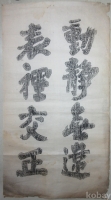 動靜無違
表裡交正
kobay